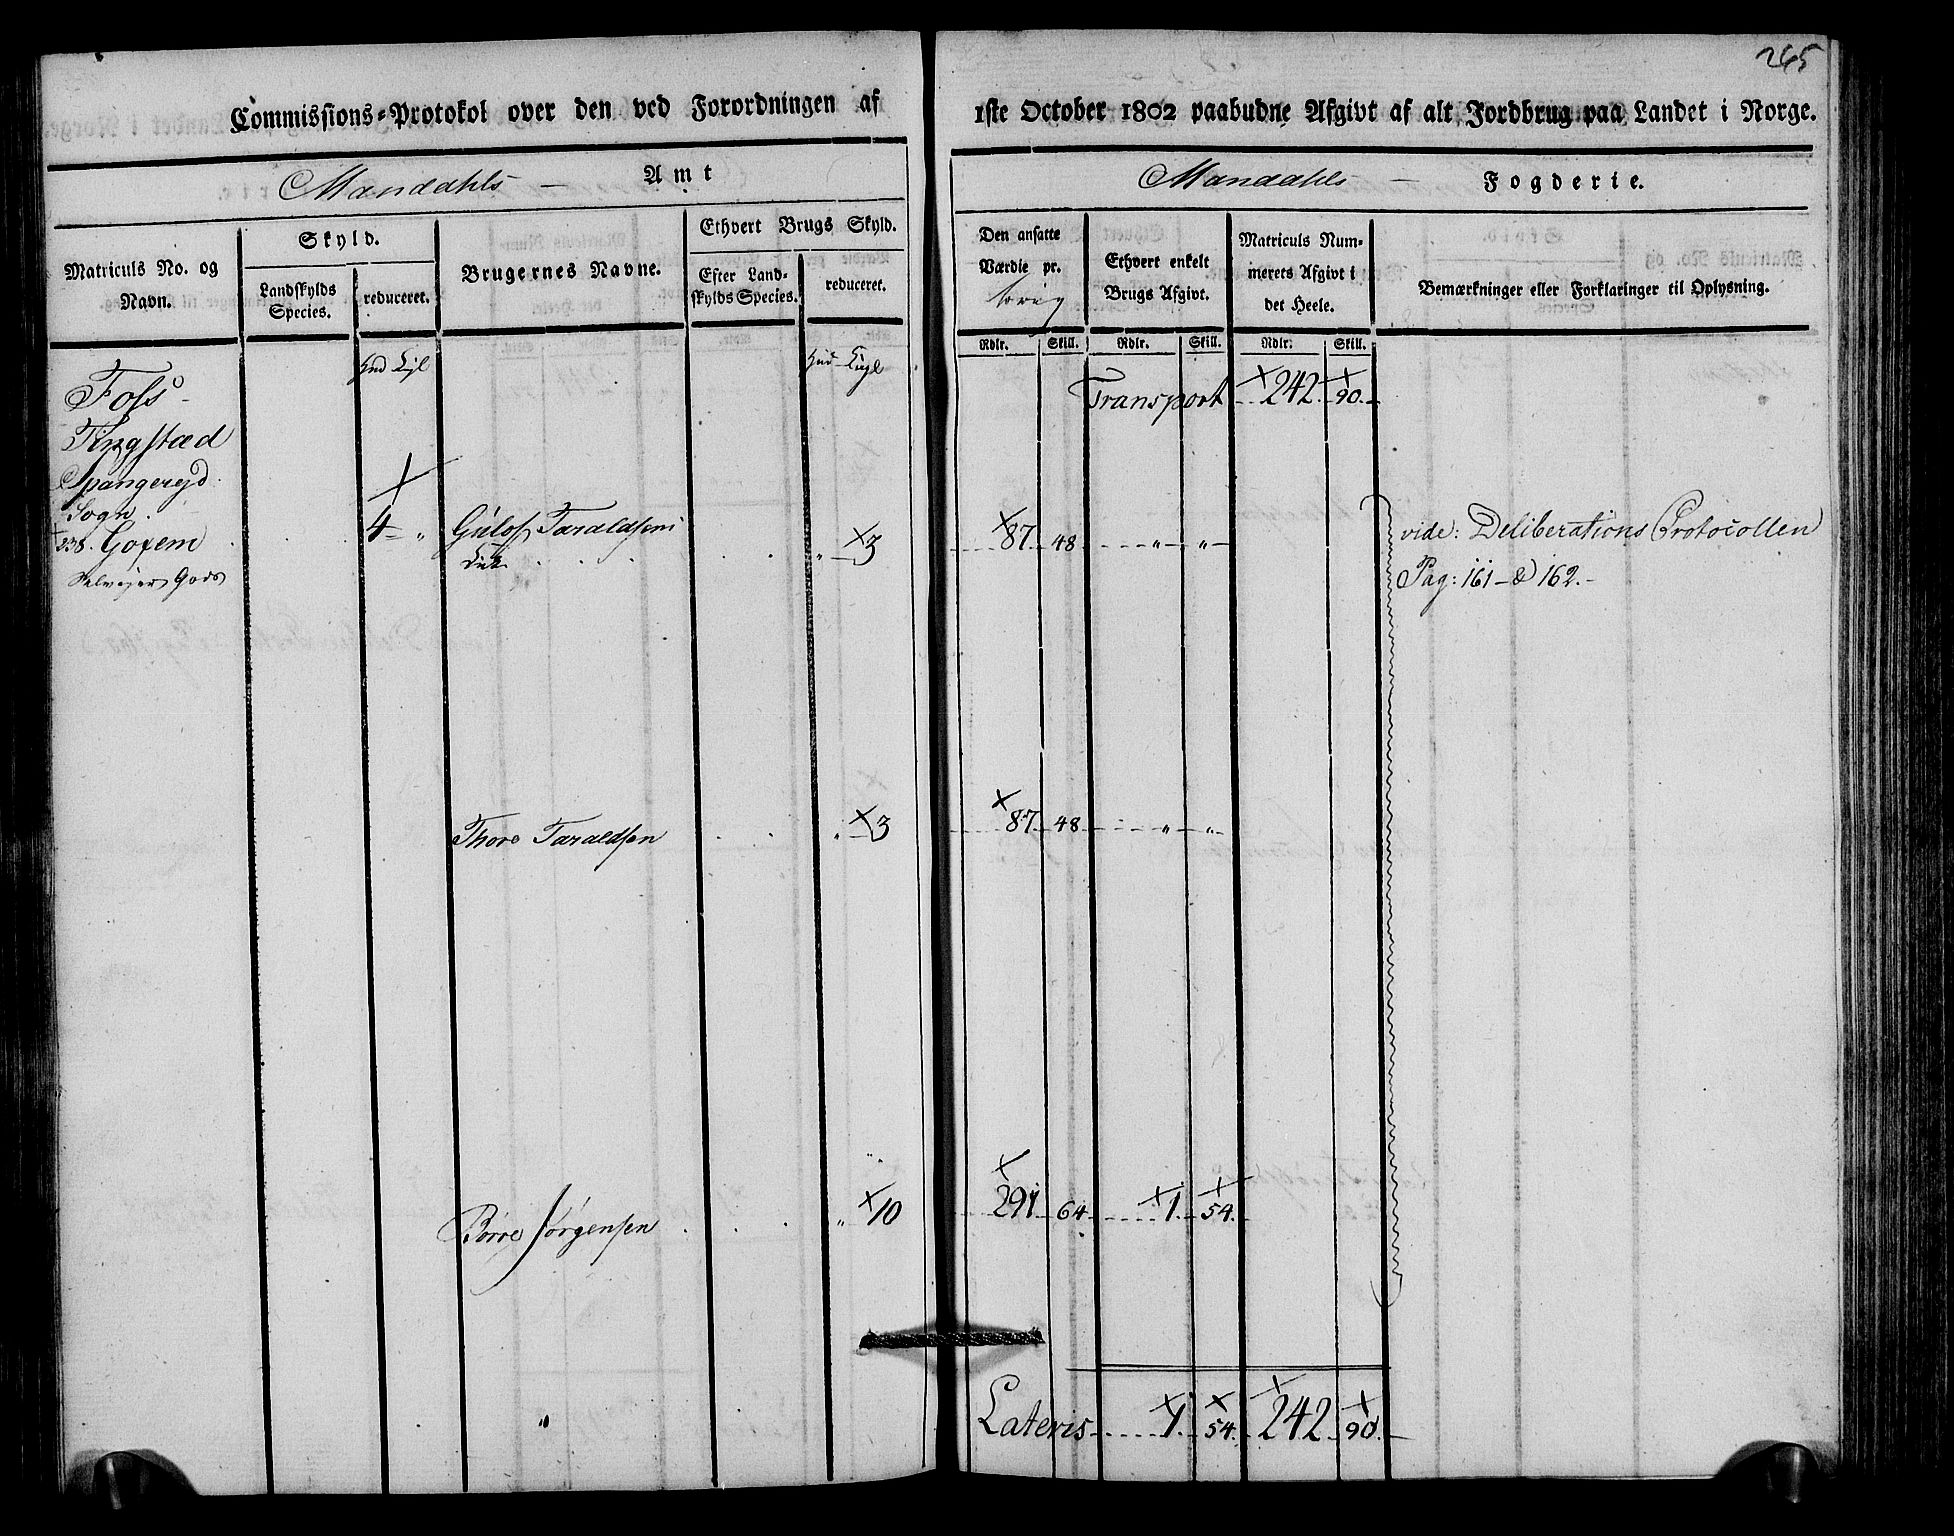 265
Commissions-Protokol over den ved Forordningen af 1ste October 1802 paabudne Afgivt af alt Jordbrug paa Landet i Norge.
Mandahls – Amt
Mandahls – Fogderie.
Matriculs No. og Navn.
Skyld.
Landskylds Species.
reduceret.
Brugernes Navne.
Ethvert Brugs Skyld.
Efter Landskylds Species.
reduceret.
Den ansatte Værdie pr.
Ethvert enkelt Brugs Afgivt.
Matriculs Nummerets Afgivt i det Heele.
Bemærkninger eller Forklaringer til Oplysning.
Rdlr. Skill. Rdlr. Skill. Rdlr. Skill.
Transport 242 90
Foss
Tingstæd
Spangereyd
Sogn
238. Goxem 4 " Gulof Taraldsen " 3 87 48 " " vide: Deliberations Protocollen
Selvejer Gods Pag: 161 & 162.
Thore Taraldsen " 3 87 48 " "
Børre Jørgensen " 10 291 64 1 54
" Lateris 1 54 242 90